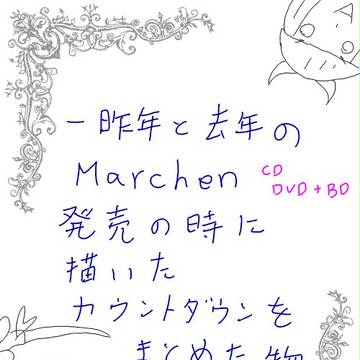 一昨年と去年の
Marchen
CD
DVD+BD
発売の時に
描いた
カウントダウンを
まとめた物